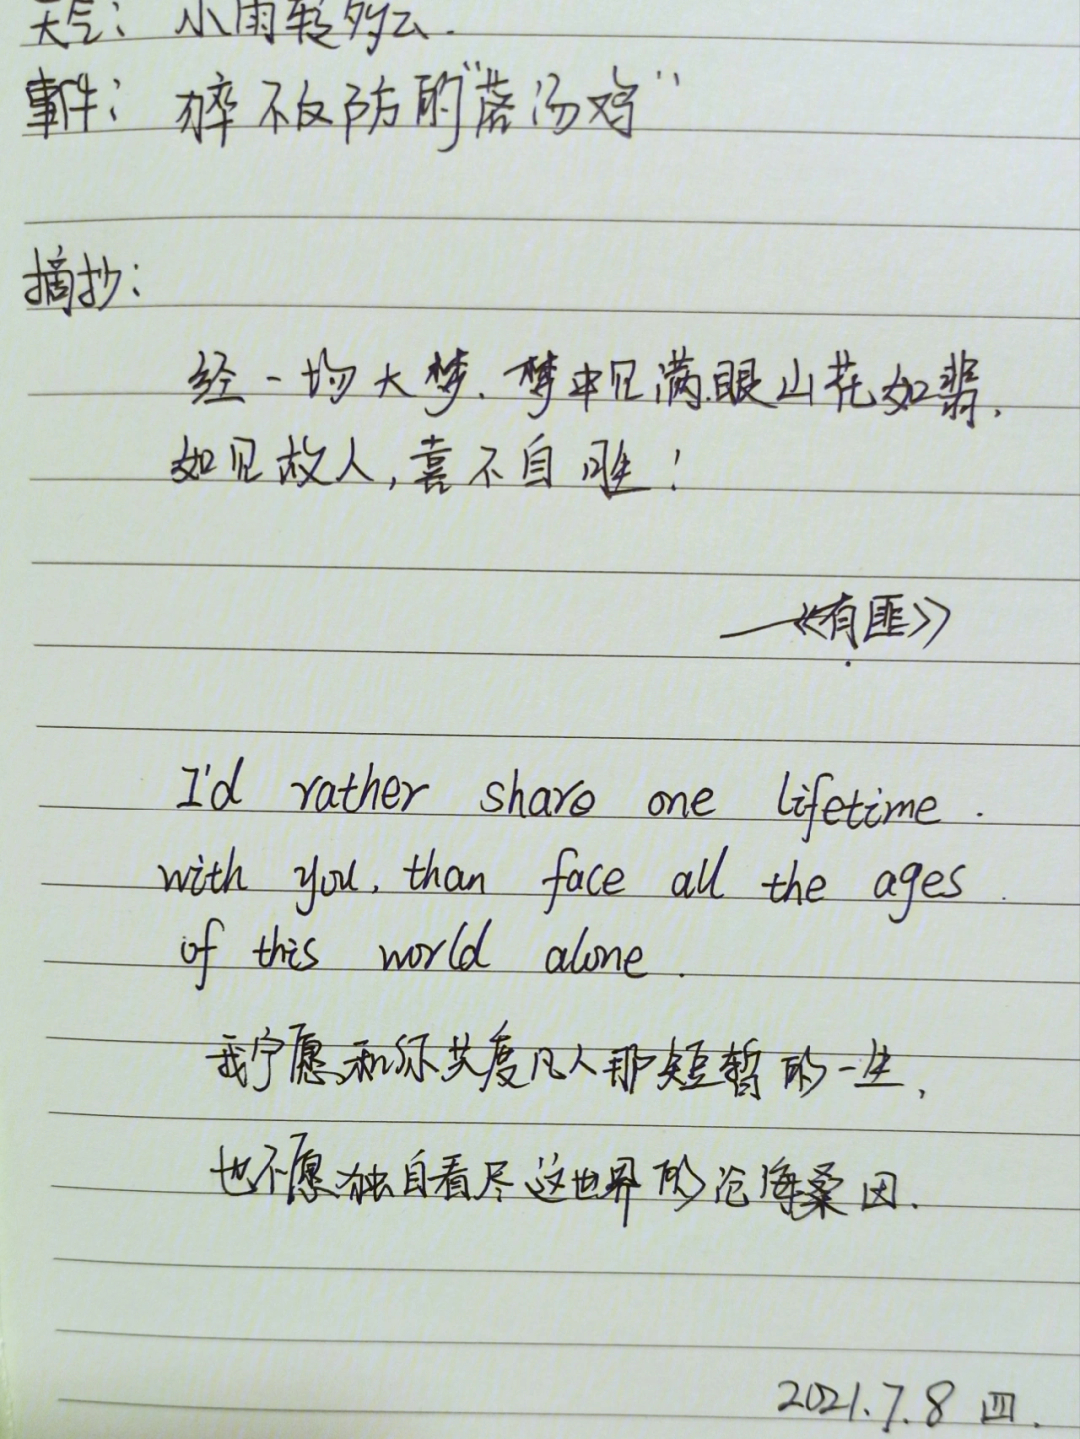 天气：小雨转多云.
事件：猝不及防的“落汤鸡”
摘抄：
经一场大梦.梦中见满眼山花如翡,
如见故人,喜不自胜!
——《有匪》
I'd rather share one lifetime.
with you, than face all the ages.
of this world alone.
我宁愿和你共度凡人那短暂的一生,
也不愿独自看尽这世界的沧海桑田.
2021.7.8 四.